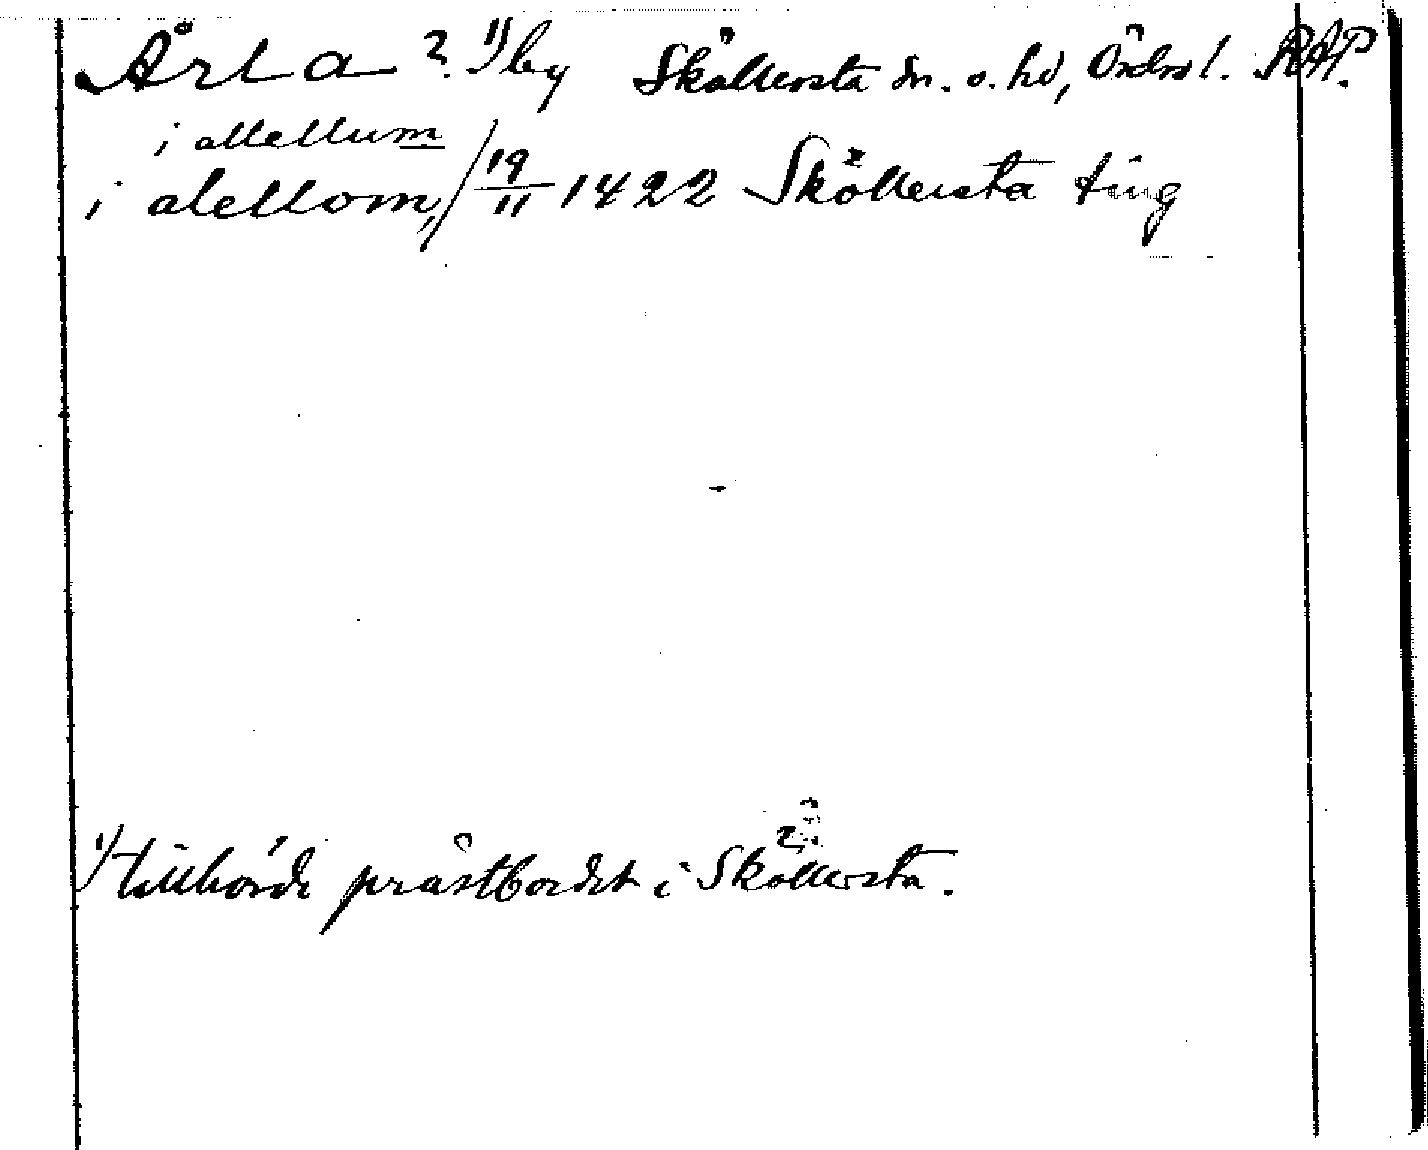 Årla ? 1) by Sköllersta sn. o. hd, Örebro l. RAP.
i allellum
i alellom, / 19/11 1422 Sköllersta ting
1) tillhörde prästbordet i Sköllersta.